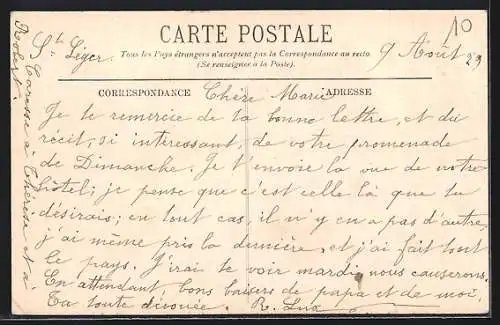 CARTE POSTALE
10
St Léger.
Tous les Pays étrangers n'acceptent pas la Correspondance au recto.
(Se renseigner à la Poste).
9 Août 29
CORRESPONDANCE
ADRESSE
Chère Marie
Je te remercie de ta bonne lettre, et du
récit, si intéressant, de votre promenade
de Dimanche. Je t'envoie la vue de notre
hôtel; je pense que c'est celle là que tu
désirais; en tout cas, il n'y en a pas d'autre,
j'ai même pris la dernière, et j'ai fait tout
le pays. J'irai te voir mardi, nous causerons.
En attendant bons baisers de papa et de moi.
Ta toute dévouée. R.
Caresse à Thérèse et à
Robert.